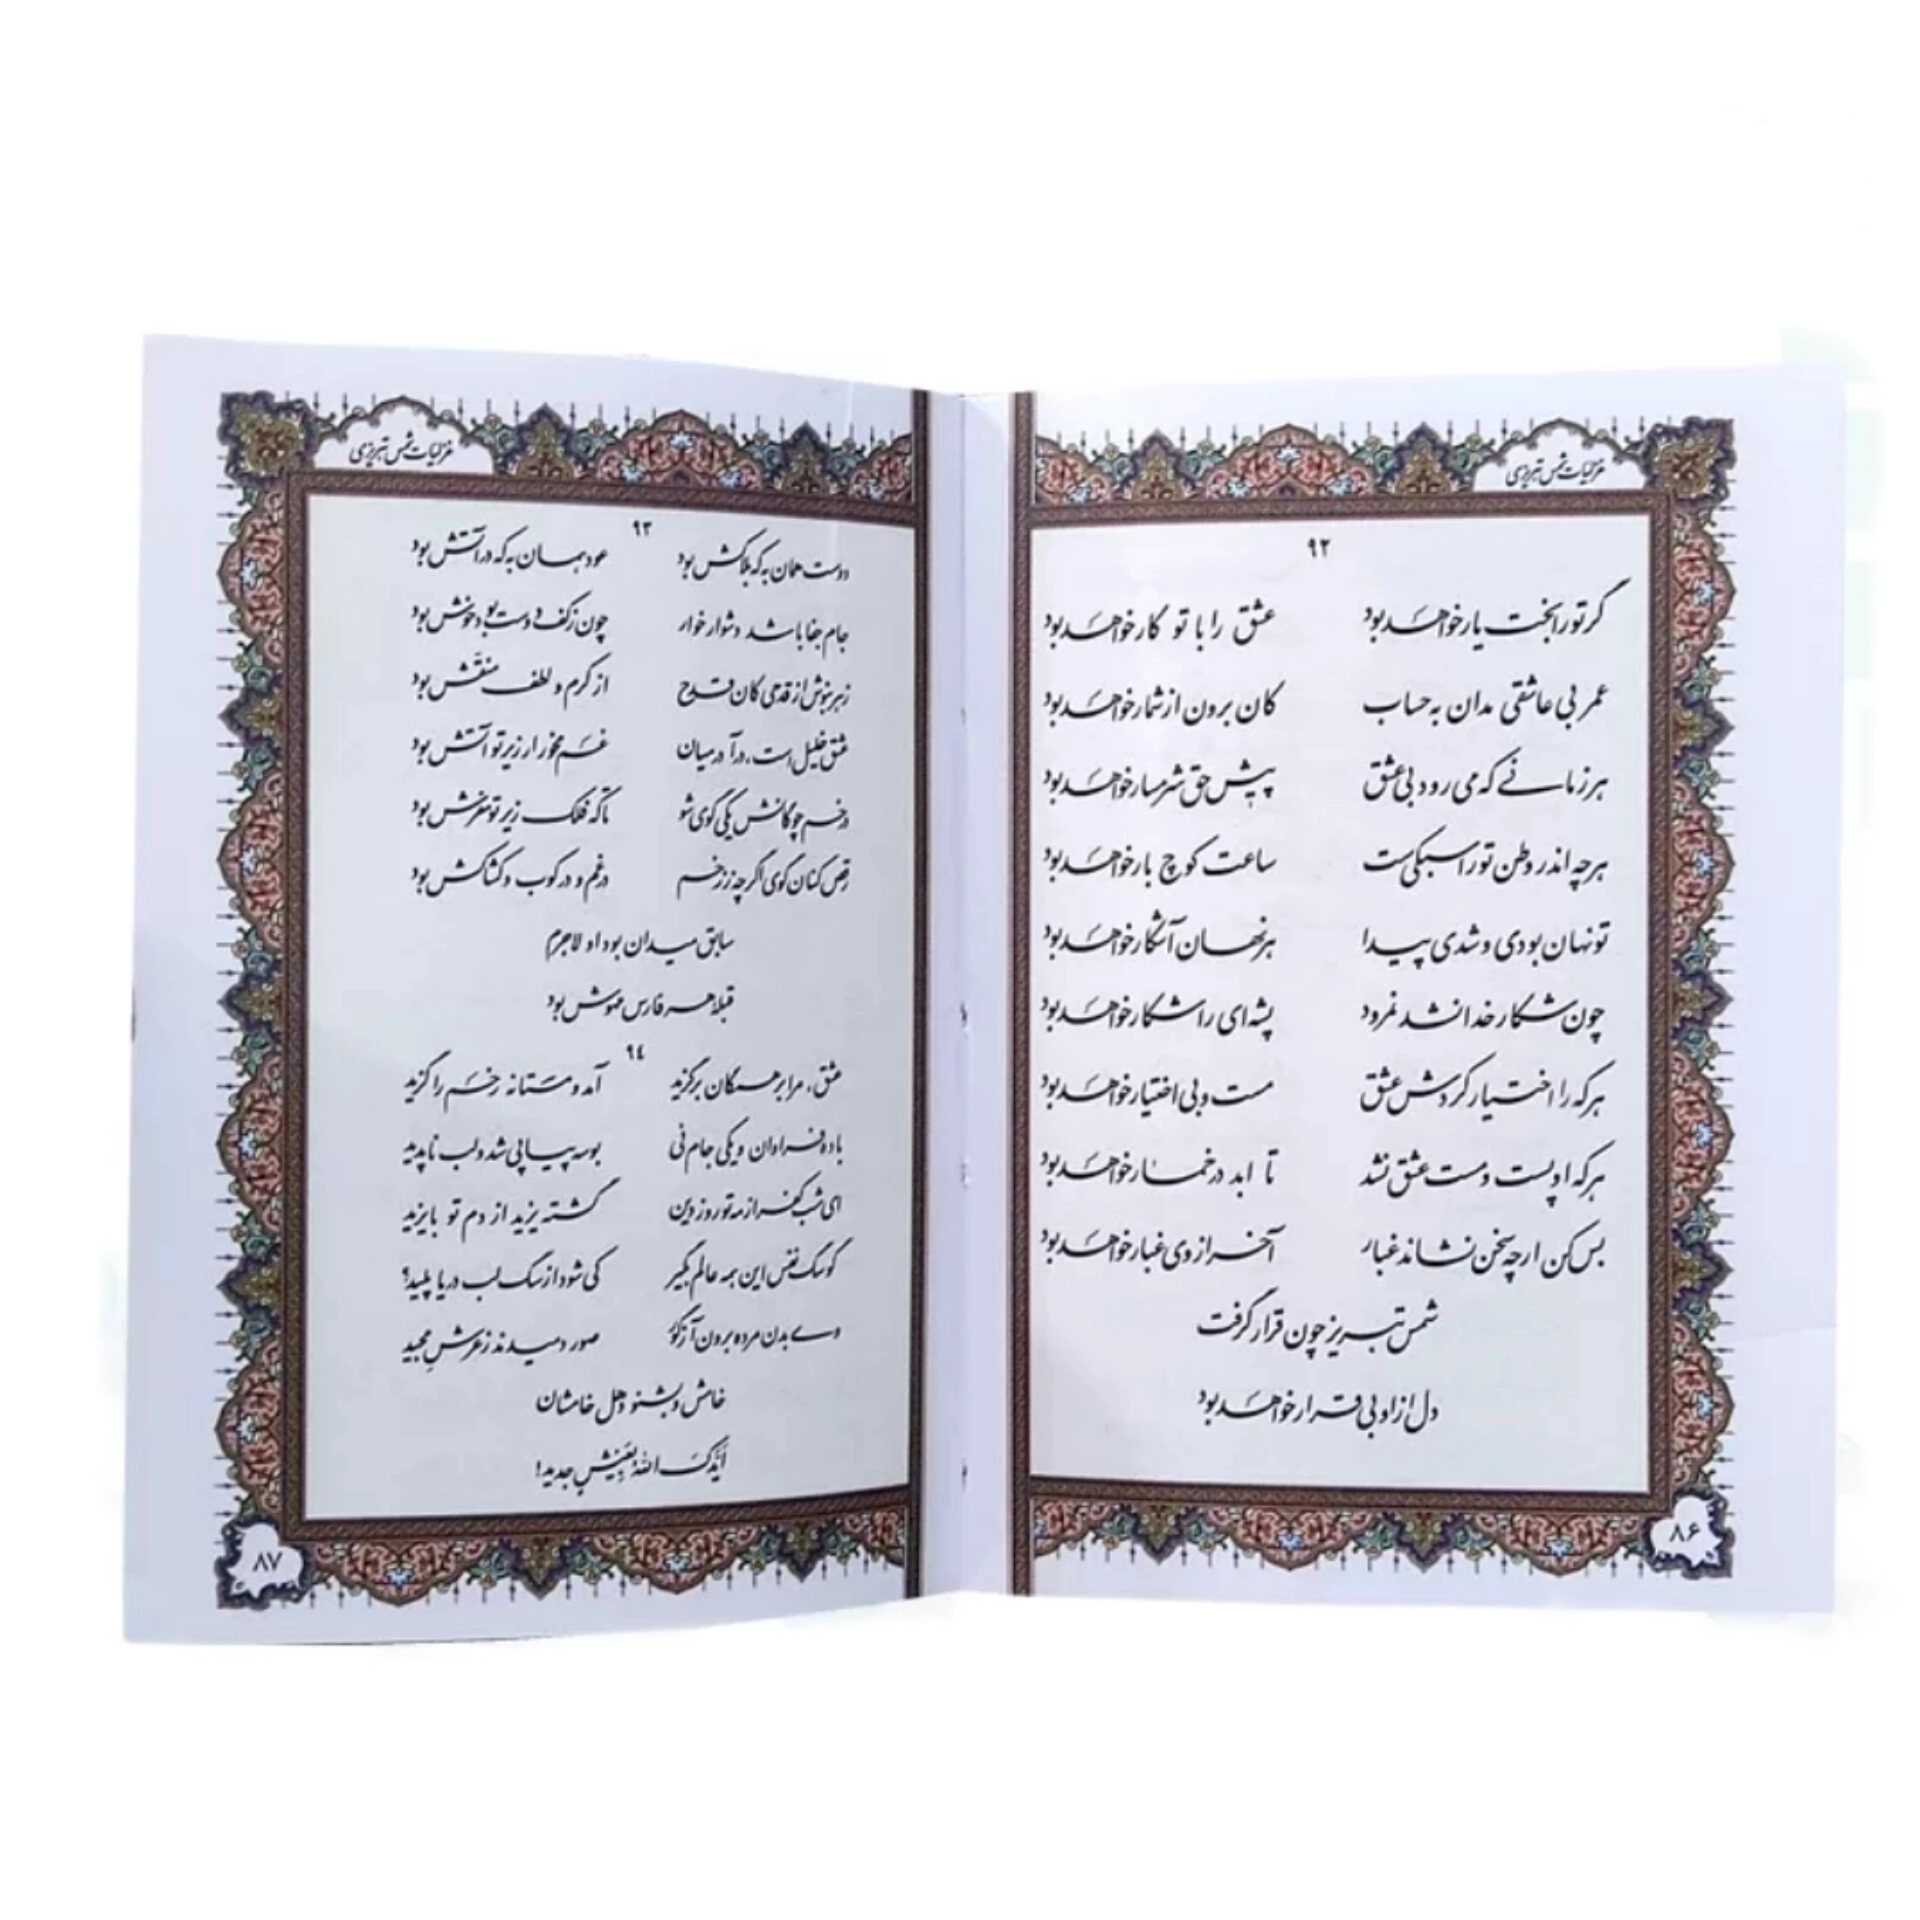 غزلیات شمس تبریزی
۹۲
گر تو را بخت یار خواهد بود    عشق را با تو کار خواهد بود
عمر بی عاشقی مدان به حساب    کان برون از شمار خواهد بود
هر زمانے که می رود بی عشق    پیش حق شرمسار خواهد بود
هر چه اندر وطن تو را سبکی ست    ساعت کوچ بار خواهد بود
تو نهان بودی و شدی پیدا    هر نهان آشکار خواهد بود
چون شکار خدا نشد نمرود    پشه ای را شکار خواهد بود
هر که را اختیار کردش عشق    مست و بی اختیار خواهد بود
هر که او پست و مست عشق نشد    تا ابد در خمار خواهد بود
بس کن ار چه سخن نشاند غبار    آخر از وی غبار خواهد بود
شمس تبریز چون قرار گرفت
دل از او بی قرار خواهد بود
۸۶
غزلیات شمس تبریزی
۹۳
دوست همان به که بلاکش بود    عود همان به که در آتش بود
جام جفا باشد دشوار خوار    چون ز کف دوست بود خوش بود
زهر بنوش از قدحی کان قدح    از کرم و لطف منقش بود
عشق خلیل است، درآ در میان    غم مخور ار زیر تو آتش بود
در خم چوگانش یکی گوی شو    تا که فلک زیر تو مفرش بود
رقص کنان گوی اگر چه ز زخم    در غم و در کوب و کشاکش بود
سابق میدان بود او لاجرم
قبله هر فارس مهوش بود
۹۴
عشق، مرا بر همگان برگزید    آمد و مستانه رخم را گزید
باده فراوان و یکی جام نی    بوسه پیاپی شد و لب ناپدید
ای شب کفر از مه تو روز دین    گشته یزید از دم تو بایزید
گو سگ نفس این همه عالم بگیر    کی شود از سگ لب دریا پلید؟
وے بدن مرده برون آ ز گور    صور دمیدند ز عرش مجید
خامش و بشنو دهل خامشان
اَیَّدَکَ اللهُ بِعَیشٍ جدید!
۸۷